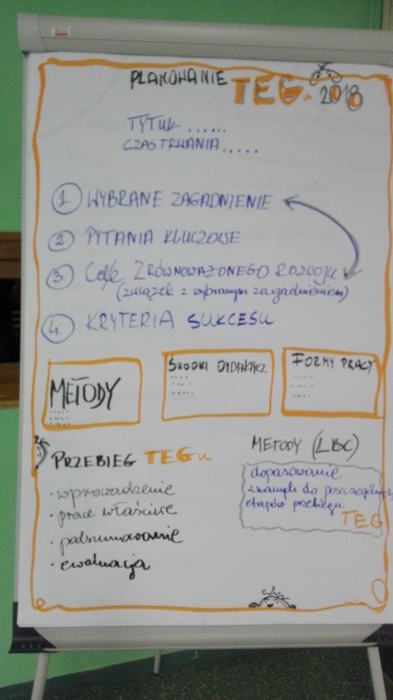 PLANOWANIE TEGu 2018
TYTUŁ ......
CZAS TRWANIA.....
1. WYBRANE ZAGADNIENIE
2. PYTANIA KLUCZOWE
3. Cele ZRÓWNOWAŻONEGO ROZWOJU
(związek z wybranym zagadnieniem)
4. KRYTERIA SUKCESU
METODY
ŚRODKI DYDAKTYCZ.
FORMY PRACY
PRZEBIEG TEGu
· wprowadzenie
· prace właściwe
· podsumowanie
· ewaluacja
METODY (LBC)
dopasowanie
znanych do poszczególnych
etapów przebiegu
TEG